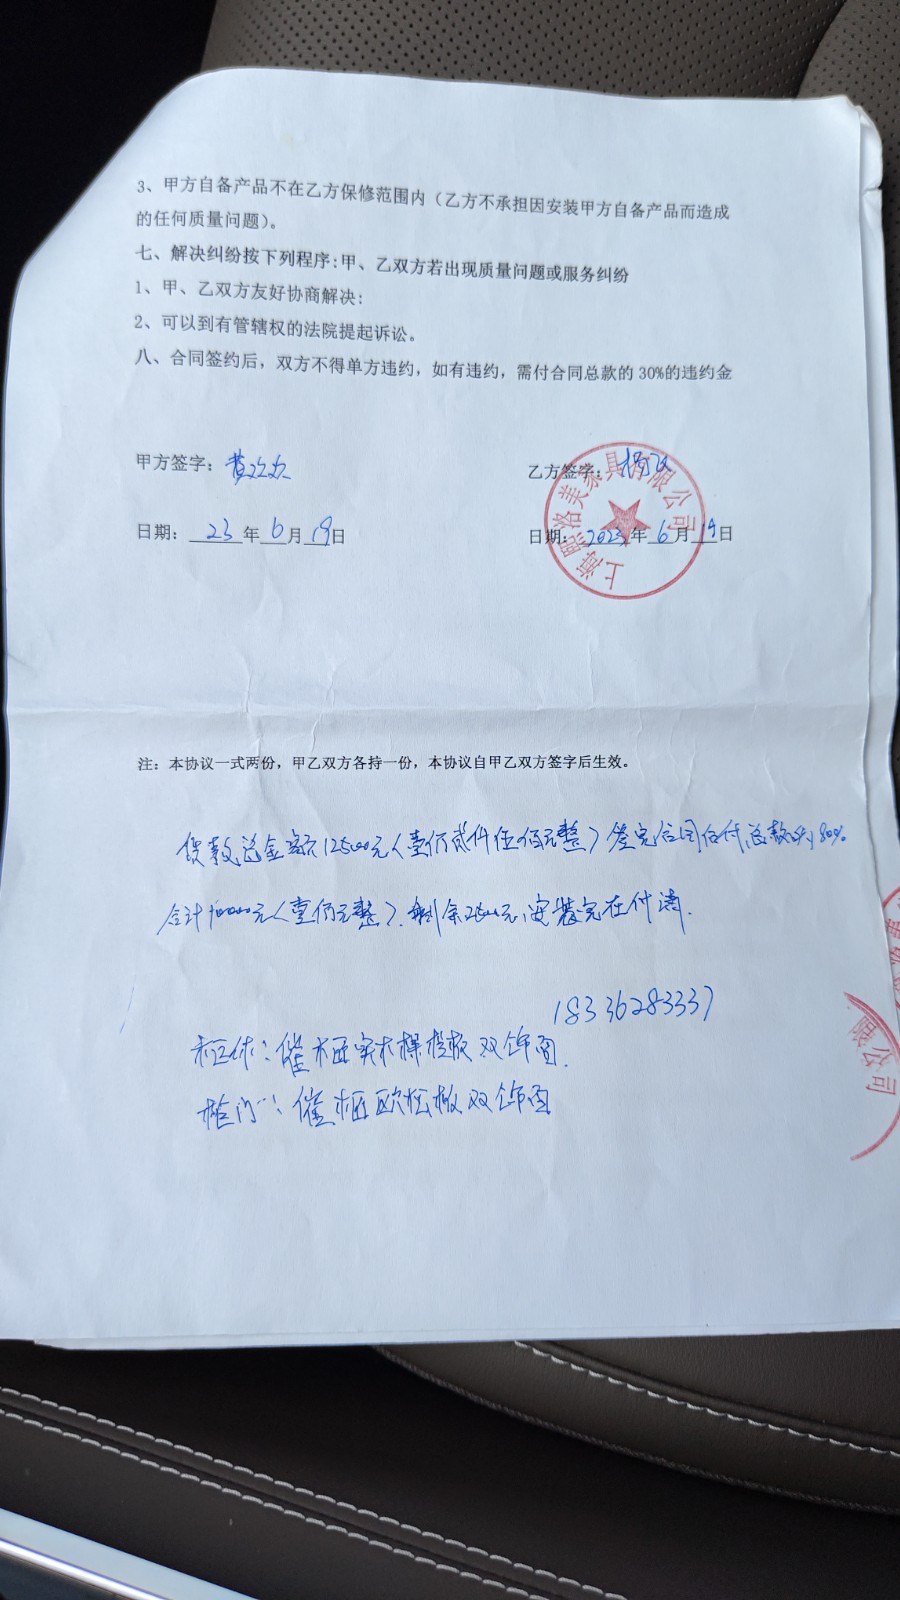 3、甲方自备产品不在乙方保修范围内（乙方不承担因安装甲方自备产品而造成
的任何质量问题）。
七、解决纠纷按下列程序:甲、乙双方若出现质量问题或服务纠纷
1、甲、乙双方友好协商解决:
2、可以到有管辖权的法院提起诉讼。
八、合同签约后，双方不得单方违约，如有违约，需付合同总款的30%的违约金
甲方签字：
乙方签字：
上海熙洛美家具有限公司
日期：23年6月19日
日期：2023年6月19日
注：本协议一式两份，甲乙双方各持一份，本协议自甲乙双方签字后生效。
货款总金额12500元（壹万贰仟伍佰元整）签完合同后付总款的80%
合计10000元（壹万元整）.剩余2500元,安装完在付清.
18336283337
柜体：橱柜实木颗粒板双饰面.
柜门：橱柜欧松板双饰面
公司